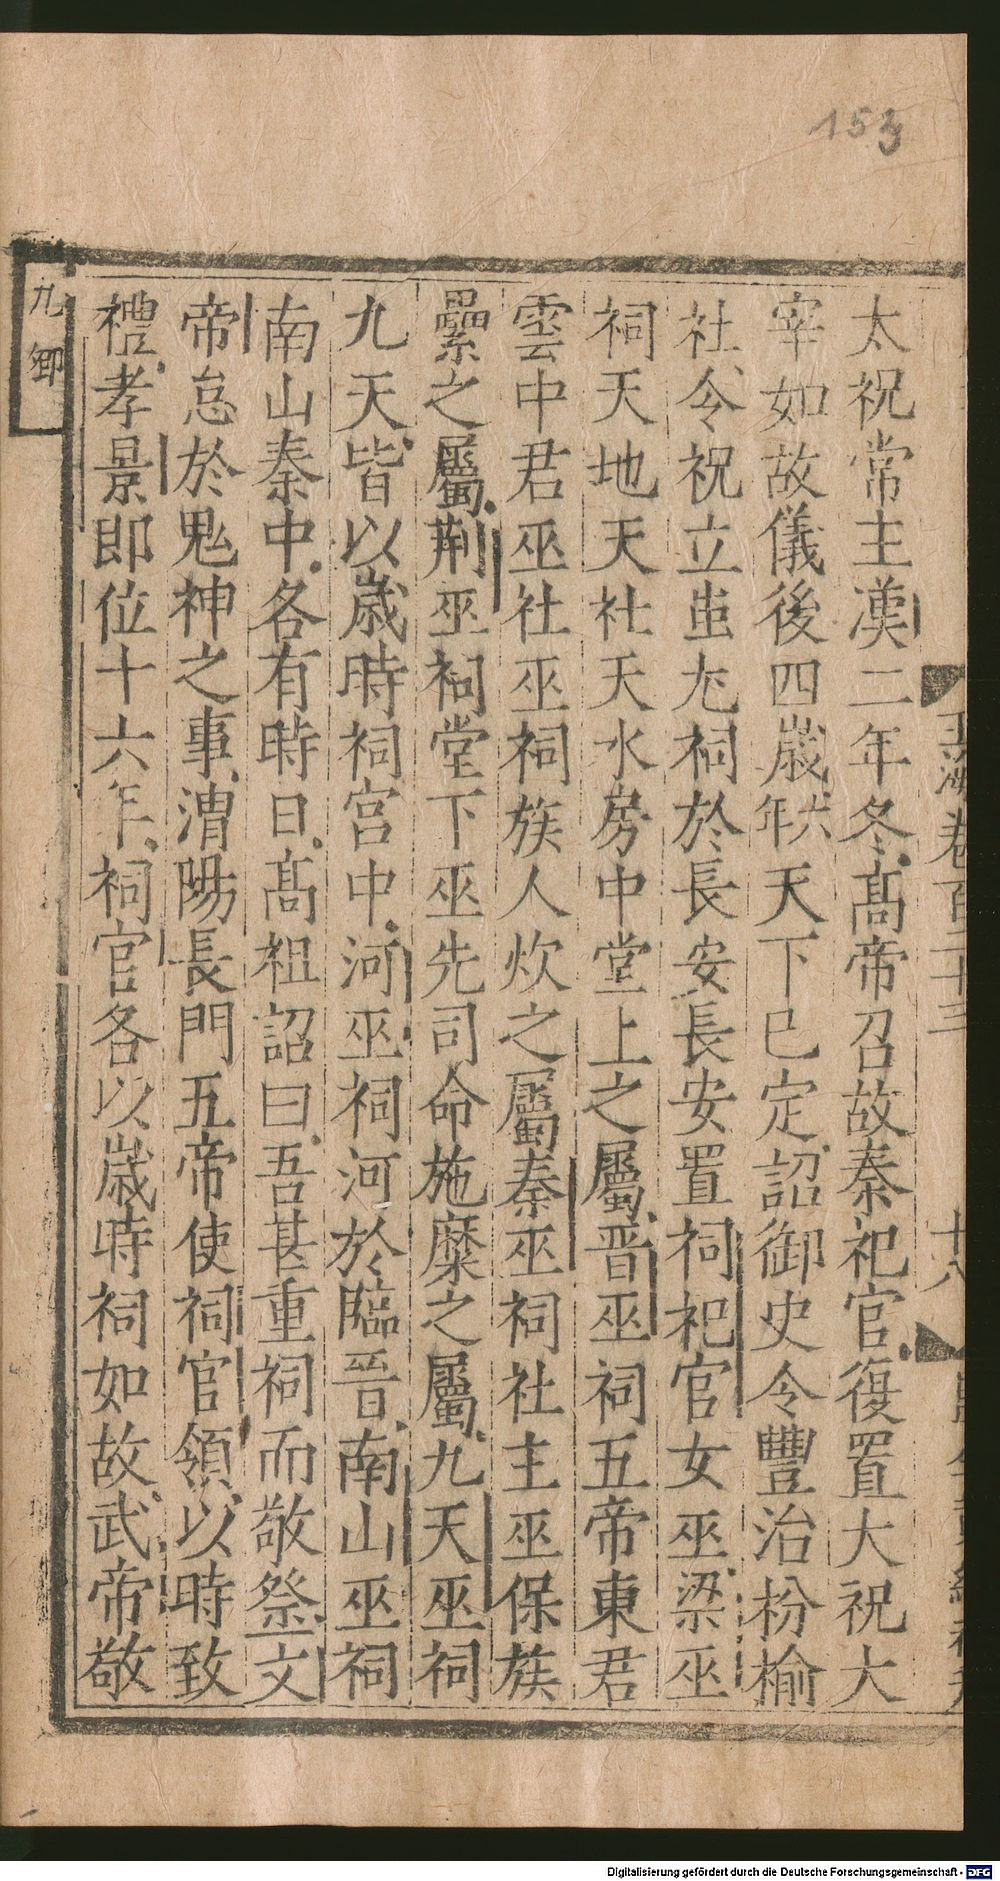 153
九卿
太祝常主漢二年冬髙帝召故秦祀官復置大祝大
宰如故儀後四歲六年天下已定詔御史令豐治枌榆
社令祝立蚩尤祠於長安長安置祠祀官女巫梁巫
祠天地天社天水房中堂上之屬晉巫祠五帝東君
雲中君巫社巫祠族人炊之屬秦巫祠社主巫保族
纍之屬荆巫祠堂下巫先司命施糜之屬九天巫祠
九天皆以歲時祠宫中河巫祠河於臨晉南山巫祠
南山秦中各有時日髙祖詔曰吾甚重祠而敬祭文
帝怠於鬼神之事渭陽長門五帝使祠官領以時致
禮孝景即位十六年祠官各以歲時祠如故武帝敬
玉海卷百二十三
十八
Digitalisierung gefördert durch die Deutsche Forschungsgemeinschaft - DFG